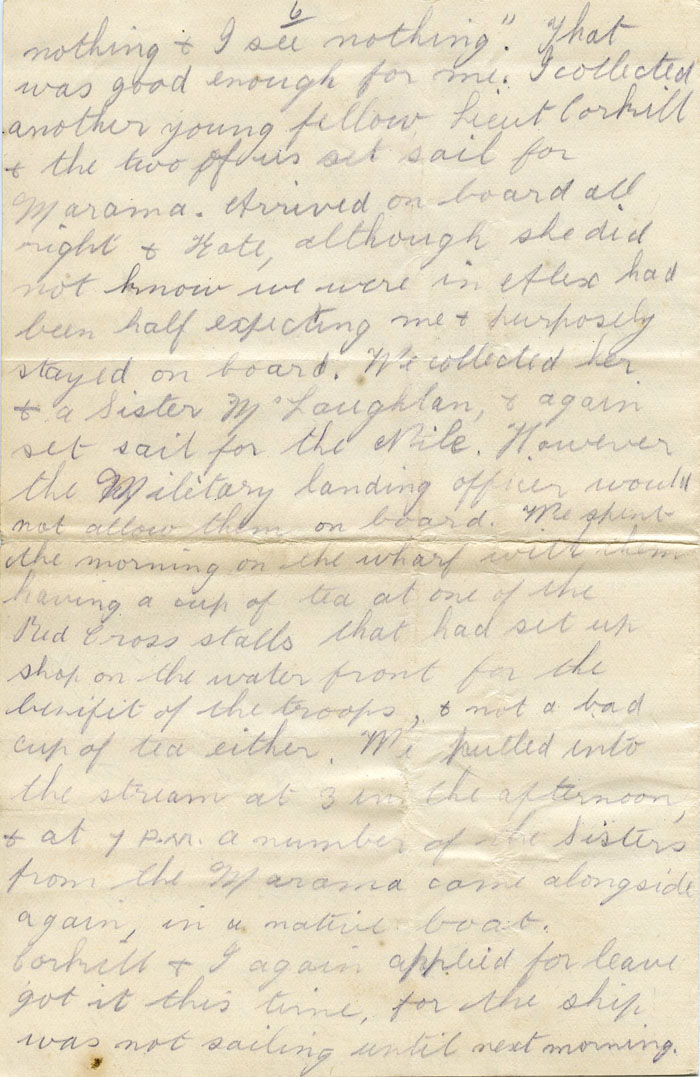 6
nothing & I see nothing". That
was good enough for me. I collected
another young fellow Lieut Corkill
& the two of us set sail for
Marama. Arrived on board all
right & Kate, although she did
not know we were in Alex had
been half expecting me & purposely
stayed on board. We collected her
& a Sister McLaughlan, & again
set sail for the Nile. However
the Military landing officer would
not allow them on board. We spent
the morning on the wharf with them
having a cup of tea at one of the
Red Cross stalls that had set up
shop on the water front for the
benifit of the troops, & not a bad
cup of tea either. We pulled into
the stream at 3 in the afternoon,
& at 7 P.M. a number of the Sisters
from the Marama came alongside
again, in a native boat.
Corkill & I again applied for leave
got it this time, for the ship
was not sailing until next morning.